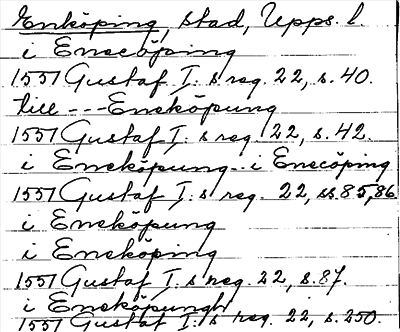 Enköping, stad, Upps. l.
i Enscöping
1551 Gustaf I:s reg. 22, s. 40.
till --- Ensköpung
1551 Gustaf I:s reg. 22, s. 42.
i Ensköpung.. i Enscöping
1551 Gustaf I:s reg. 22, ss. 85, 86
i Ensköpung
i Ensköping
1551 Gustaf I:s reg. 22, s. 87.
i Ensköpungh
1551 Gustaf I:s reg. 22, s. 250.